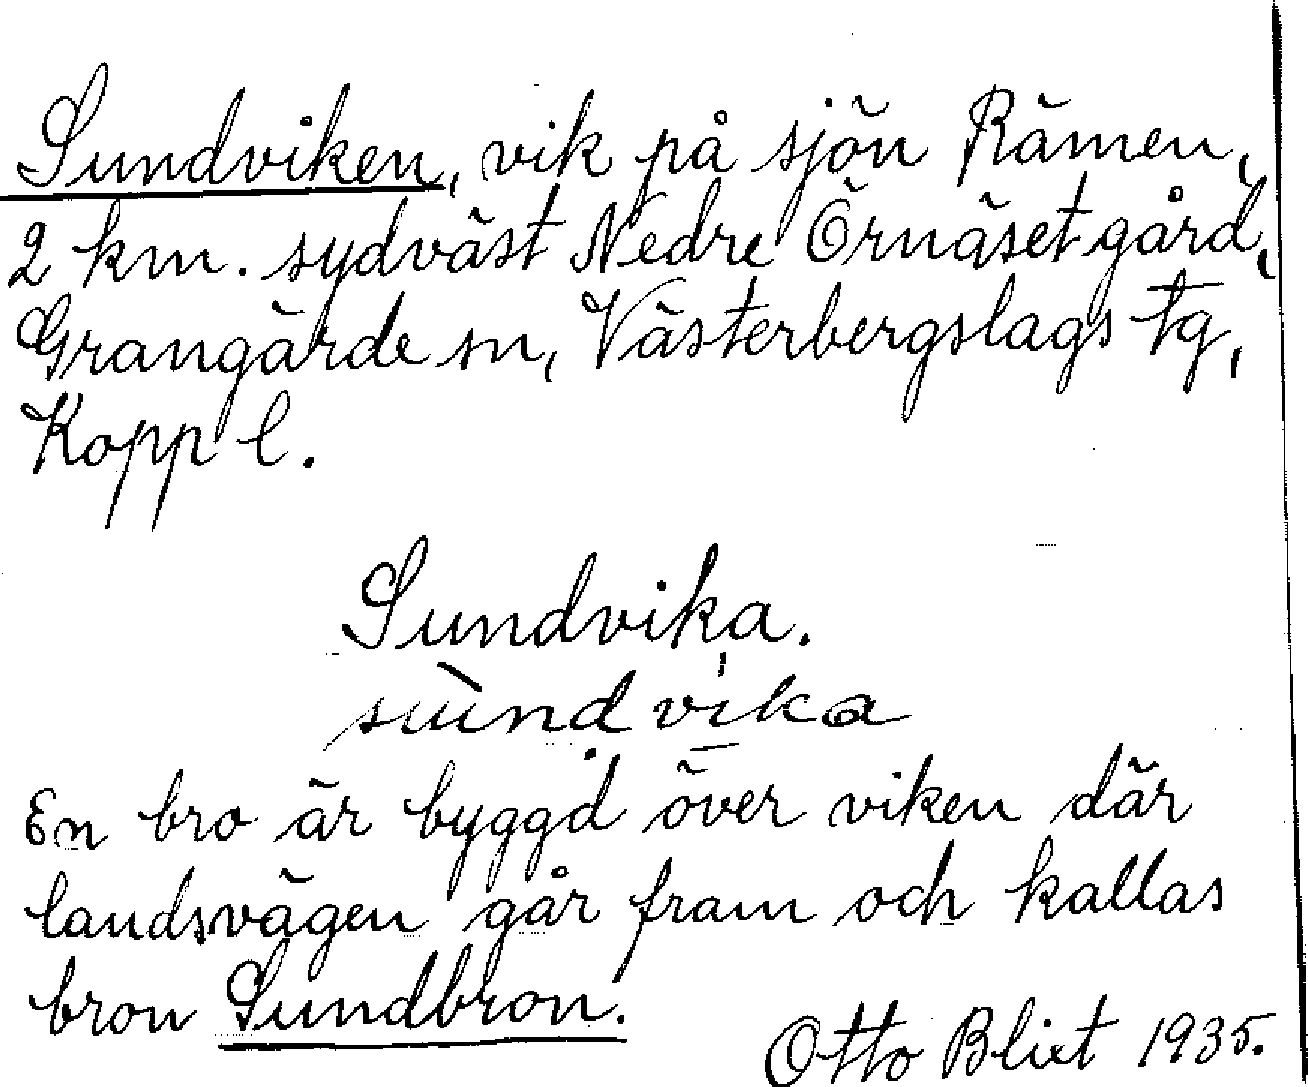 Sundviken, vik på sjön Rämen,
2 km. sydväst Nedre Örnäset gård,
Grangärde sn, Västerbergslags tg,
Kopp l.
Sundvika.
sundvika
En bro är byggd över viken där
landsvägen går fram och kallas
bron Sundbron.
Otto Blixt 1935.